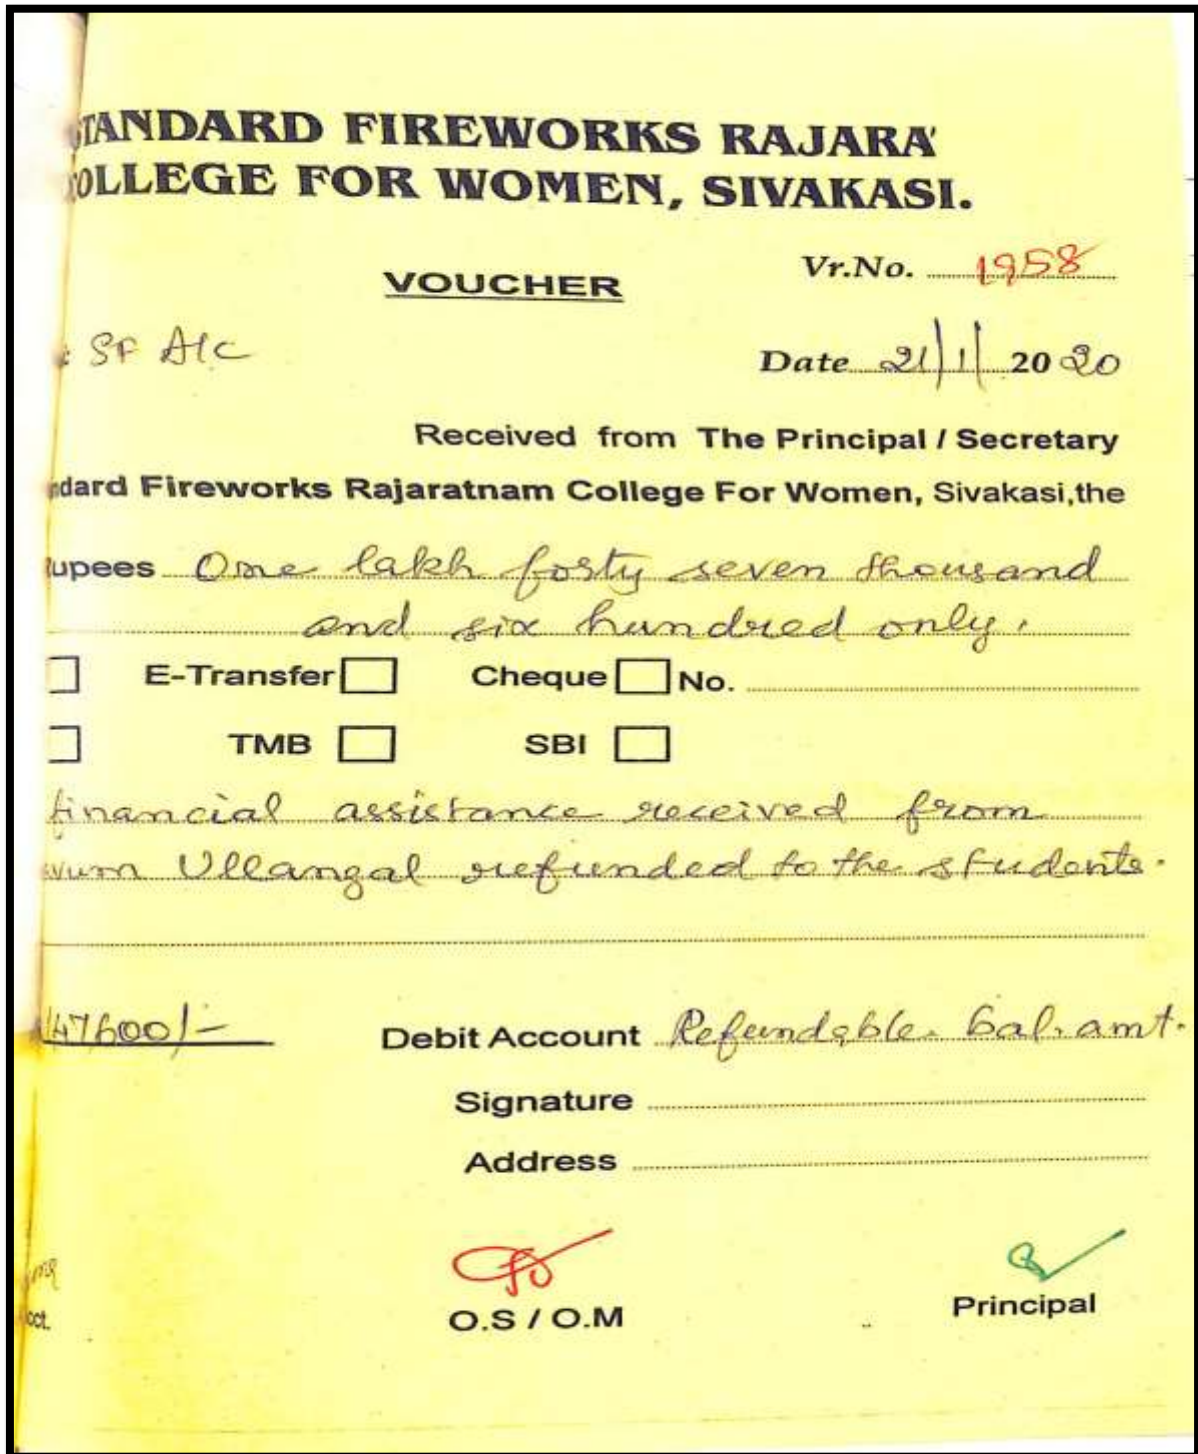 STANDARD FIREWORKS RAJARA
COLLEGE FOR WOMEN, SIVAKASI.
VOUCHER Vr.No. 1958
: SF A/c Date 21/1/2020
Received from The Principal / Secretary
ndard Fireworks Rajaratnam College For Women, Sivakasi,the
Rupees One lakh forty seven thousand
and six hundred only.
E-Transfer Cheque No.
TMB SBI
financial assistance received from
vum Ullangal refunded to the students.
147600/- Debit Account Refundable bal. amt.
Signature
Address
cct. O.S / O.M Principal